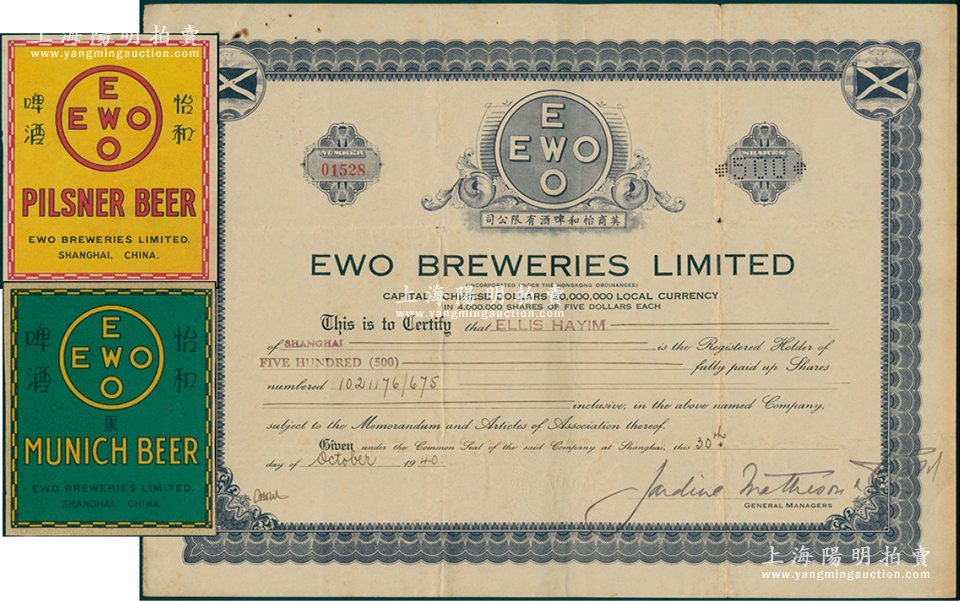 上海陽明拍賣
www.yangmingauction.com
啤酒
怡和
E
EWO
O
PILSNER BEER
EWO BREWERIES LIMITED.
SHANGHAI, CHINA.
啤酒
怡和
E
EWO
O
黑
MUNICH BEER
EWO BREWERIES LIMITED.
SHANGHAI, CHINA.
NUMBER
01528
E
EWO
O
SHARES
500
司公限有酒啤和怡商英
EWO BREWERIES LIMITED
(INCORPORATED UNDER THE HONGKONG ORDINANCES)
CAPITAL CHINESE DOLLARS 20,000,000 LOCAL CURRENCY
IN 4,000,000 SHARES OF FIVE DOLLARS EACH
上海陽明拍賣
www.yangmingauction.com
This is to Certify that ELLIS HAYIM
of SHANGHAI is the Registered Holder of
FIVE HUNDRED (500) fully paid up Shares
numbered 1021176/675
inclusive, in the above named Company,
subject to the Memorandum and Articles of Association thereof.
Given under the Common Seal of the said Company at Shanghai, this 30th
day of October 1940.
Jardine Matheson
GENERAL MANAGERS
上海陽明拍賣
www.yangmingauction.com